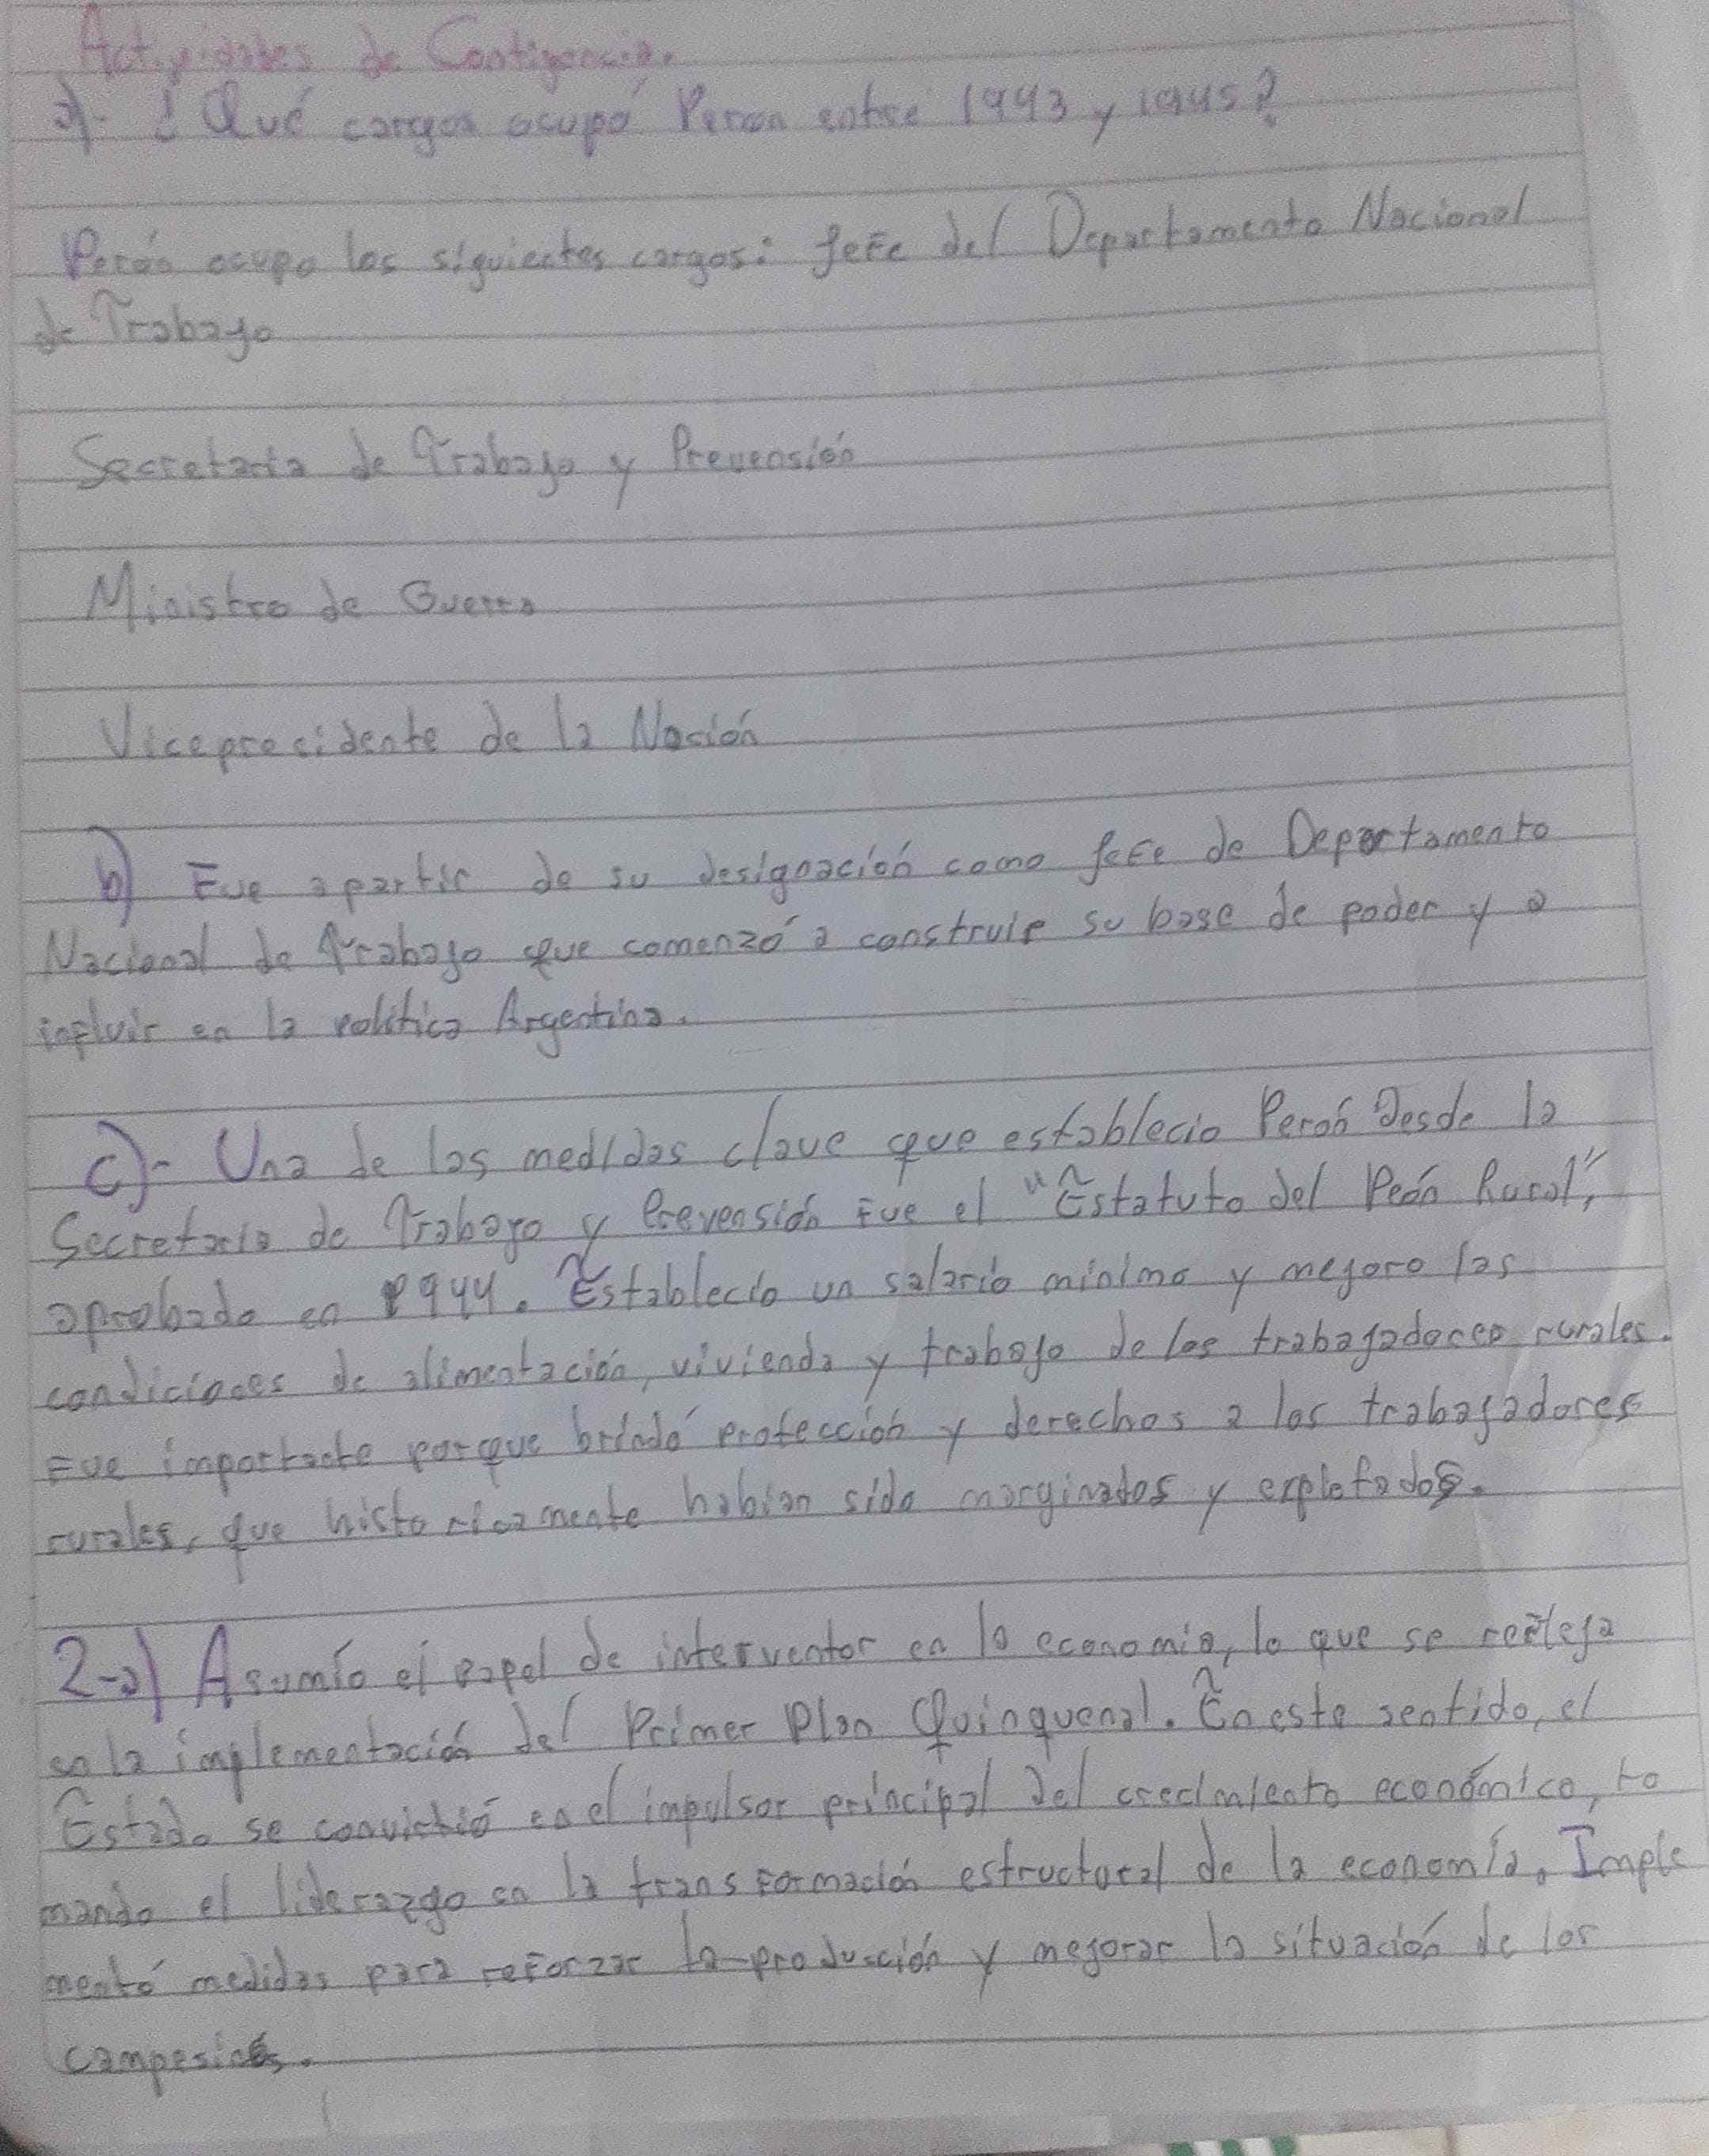 Actividades de Contigencia.
a)- ¿Qué cargos ocupó Peron entre 1943 y 1945?
Perón ocupo los siguientes cargos: Jefe del Departamento Nacional
de Trabajo
Secretaria de Trabajo y Prevensión
Ministro de Guerra
Viceprecidente de la Nación
b) Fue apartir de su designación como Jefe de Departamento
Nacional de Trabajo que comenzó a construir su base de poder y a
influir en la política Argentina.
c)- Una de las medidas clave que establecio Perón Desde la
Secretaria de Trabajo y Prevensión fue el "Estatuto del Peón Rural",
aprobado en 1944. Establecio un salario mínimo y mejoro las
condiciones de alimentación, vivienda y trabajo de los trabajadores rurales.
Fue importante porque brindó protección y derechos a los trabajadores
rurales, que historicamente habian sido marginados y explotados.
2-a) Asumío el papel de interventor en la economia, lo que se refleja
en la implementación del Primer Plan Quinquenal. En este sentido, el
Estado se convirtió en el impulsor principal del crecimiento económico, to
mando el liderazgo en la transformación estructural de la economía. Imple
mentó medidas para reforzar la producción y mejorar la situación de los
campesinos.